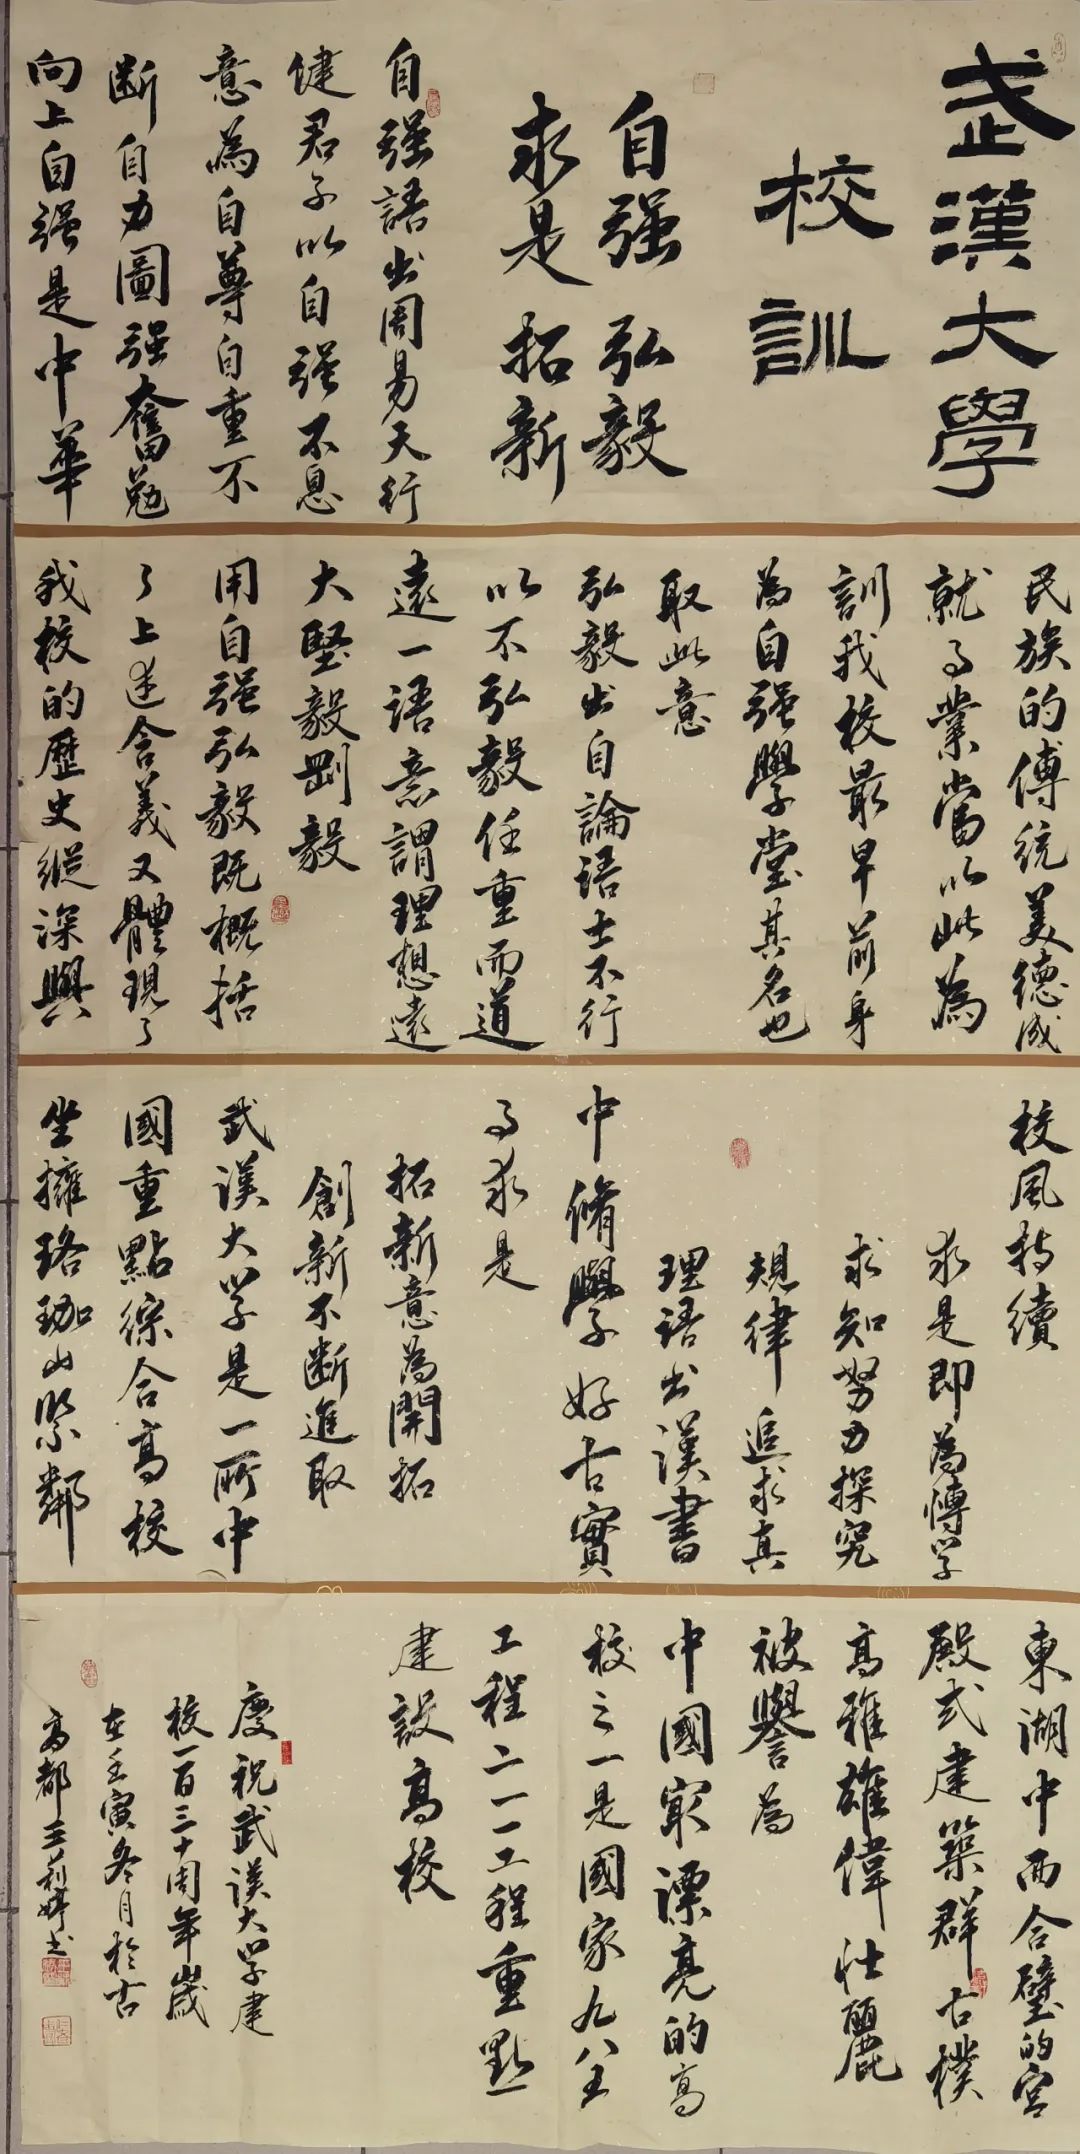 武漢大學
校訓
自强 弘毅
求是 拓新
自强語出周易天行
健君子以自强不息
意為自尊自重不
断自力圖强奮勉
向上自强是中華
民族的傳統美德成
就事業當以此為
訓我校最早前身
為自强學堂其名也
取此意
弘毅出自論語士不行
以不弘毅任重而道
遠一語意謂理想遠
大堅毅剛毅
用自强弘毅既概括
了上述含義又體現了
我校的歷史縱深與
校風持續
求是即為博学
求知努力探究
規律 追求真
理語出漢書
中脩學好古實
事求是
拓新意為開拓
創新不断進取
武漢大学是一所中
國重點綜合高校
坐擁珞珈山緊鄰
東湖中西合璧的宫
殿式建築群古樸
高雅雄偉壮麗
被譽為
中國最漂亮的高
校之一是國家九八五
工程二一一工程重點
建設高校
慶祝武漢大学建
校一百三十周年歲
在壬寅冬月於古
高都王莉婷书